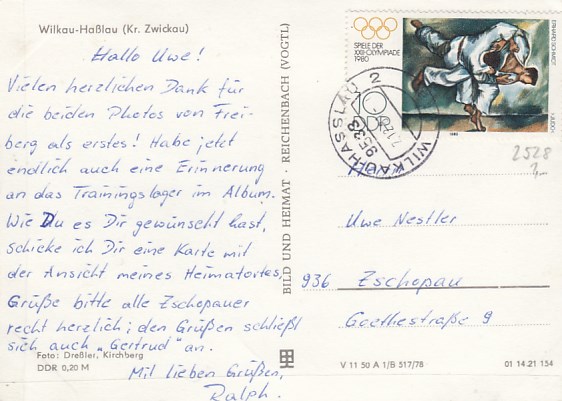 Wilkau-Haßlau (Kr. Zwickau)
Hallo Uwe!
Vielen herzlichen Dank für
die beiden Photos von Frei-
berg als erstes! Habe jetzt
endlich auch eine Erinnerung
an das Trainingslager im Album.
Wie Du es Dir gewünscht hast,
schicke ich Dir eine Karte mit
der Ansicht meines Heimatortes.
Grüße bitte alle Zschopauer
recht herzlich; den Grüßen schließt
sich auch „Gertrud" an.
Mit lieben Grüßen,
Ralph.
Foto: Dreßler, Kirchberg
DDR 0,20 M
BILD UND HEIMAT · REICHENBACH (VOGTL)
SPIELE DER
XXII. OLYMPIADE
1980
10
DDR
1980
WILKAU-HASSLAU 2
9533
2528
Uwe Nestler
936 Zschopau
Goethestraße 9
V 11 50 A 1/B 517/78
01 14 21 154